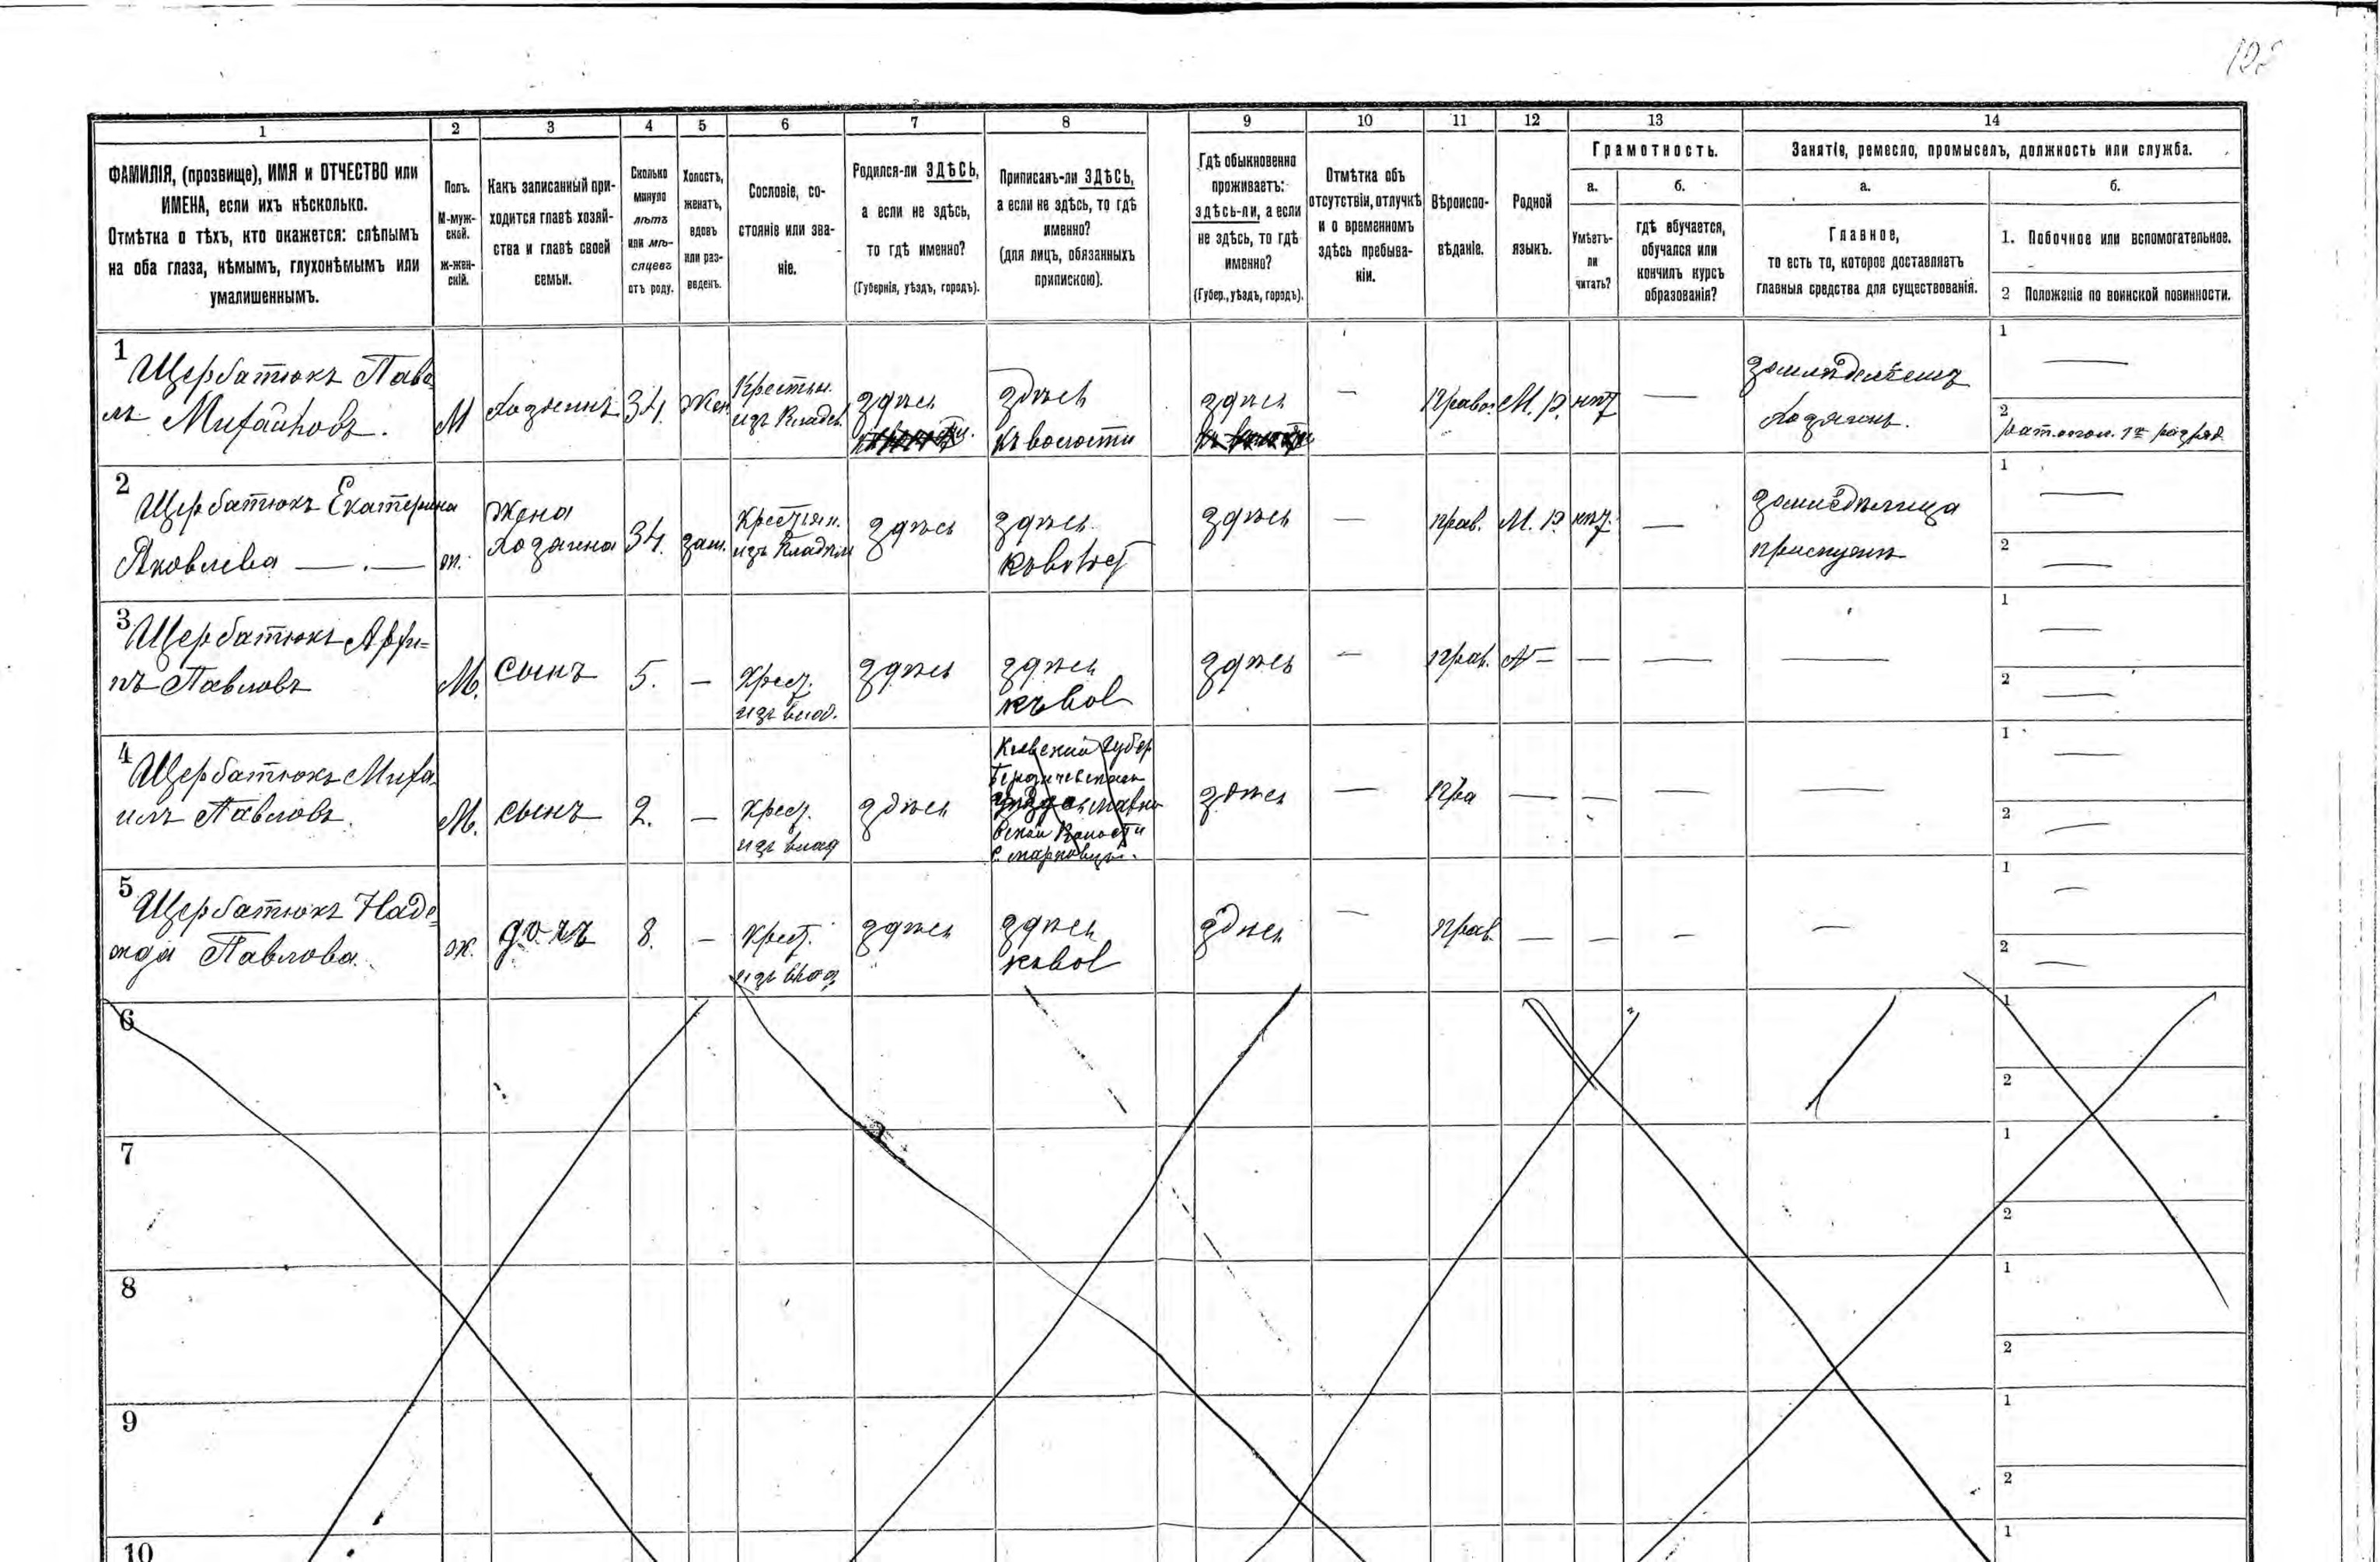 122
1 2 3 4 5 6 7 8 9 10 11 12 13 14
ФАМИЛІЯ, (прозвище), ИМЯ и ОТЧЕСТВО или
ИМЕНА, если ихъ нѣсколько.
Отмѣтка о тѣхъ, кто окажется: слѣпымъ
на оба глаза, нѣмымъ, глухонѣмымъ или
умалишеннымъ.
Полъ.
М-муж-
ской.
ж-жен-
скій.
Какъ записанный при-
ходится главѣ хозяй-
ства и главѣ своей
семьи.
Сколько
минуло
лѣтъ
или мѣ-
сяцевъ
отъ роду.
Холостъ,
женатъ,
вдовъ
или раз-
веденъ.
Сословіе, со-
стояніе или зва-
ніе.
Родился-ли ЗДѢСЬ,
а если не здѣсь,
то гдѣ именно?
(Губернія, уѣздъ, городъ).
Приписанъ-ли ЗДѢСЬ,
а если не здѣсь, то гдѣ
именно?
(для лицъ, обязанныхъ
припискою).
Гдѣ обыкновенно
проживаетъ:
здѣсь-ли, а если
не здѣсь, то гдѣ
именно?
(Губер., уѣздъ, городъ).
Отмѣтка объ
отсутствіи, отлучкѣ
и о временномъ
здѣсь пребыва-
ніи.
Вѣроиспо-
вѣданіе.
Родной
языкъ.
Грамотность.
а.
Умѣетъ-
ли
читать?
б.
гдѣ обучается,
обучался или
кончилъ курсъ
образованія?
Занятіе, ремесло, промыселъ, должность или служба.
а.
Главное,
то есть то, которое доставляетъ
главныя средства для существованія.
б.
1. Побочное или вспомогательное.
2 Положеніе по воинской повинности.
1
Щербатюкъ Паве
лъ
М
Хозяинъ
34.
Жен.
Крестья.
изъ Владѣ.
здѣсь
здѣсь
къ волости
здѣсь
—
Правос.
М. Р.
нѣт
—
Хозяинъ.
1 —
2
рат. опол. 1го разряд
2
Щербатюкъ Екатерина
Яковлева — . —
ж.
Жена
Хозяина
34.
зам.
Крестьян.
изъ Владѣл
здѣсь
здѣсь
къ волост
здѣсь
—
прав.
М. Р.
нѣт.
—
1 —
2 —
3
Щербатюкъ
Павловъ
М.
сынъ
5.
—
Крест.
изъ влад.
здѣсь
здѣсь
къ вол
здѣсь
—
прав.
—
—
—
1 —
2 —
4
Щербатюкъ Миха
илъ Павловъ.
М.
сынъ
2.
—
Крест.
изъ влад
здѣсь
Кіевской Губер
Бердичевскаго
уѣзда
Волости
с.
здѣсь
—
Пра
—
—
—
—
1 —
2 —
5
Щербатюкъ Наде
жда Павлова.
ж.
дочь
8.
—
Крест.
изъ влад.
здѣсь
здѣсь
къ вол
здѣсь
—
прав.
—
—
—
—
1 —
2 —
6
1
2
7
1
2
8
1
2
9
1
2
10
1